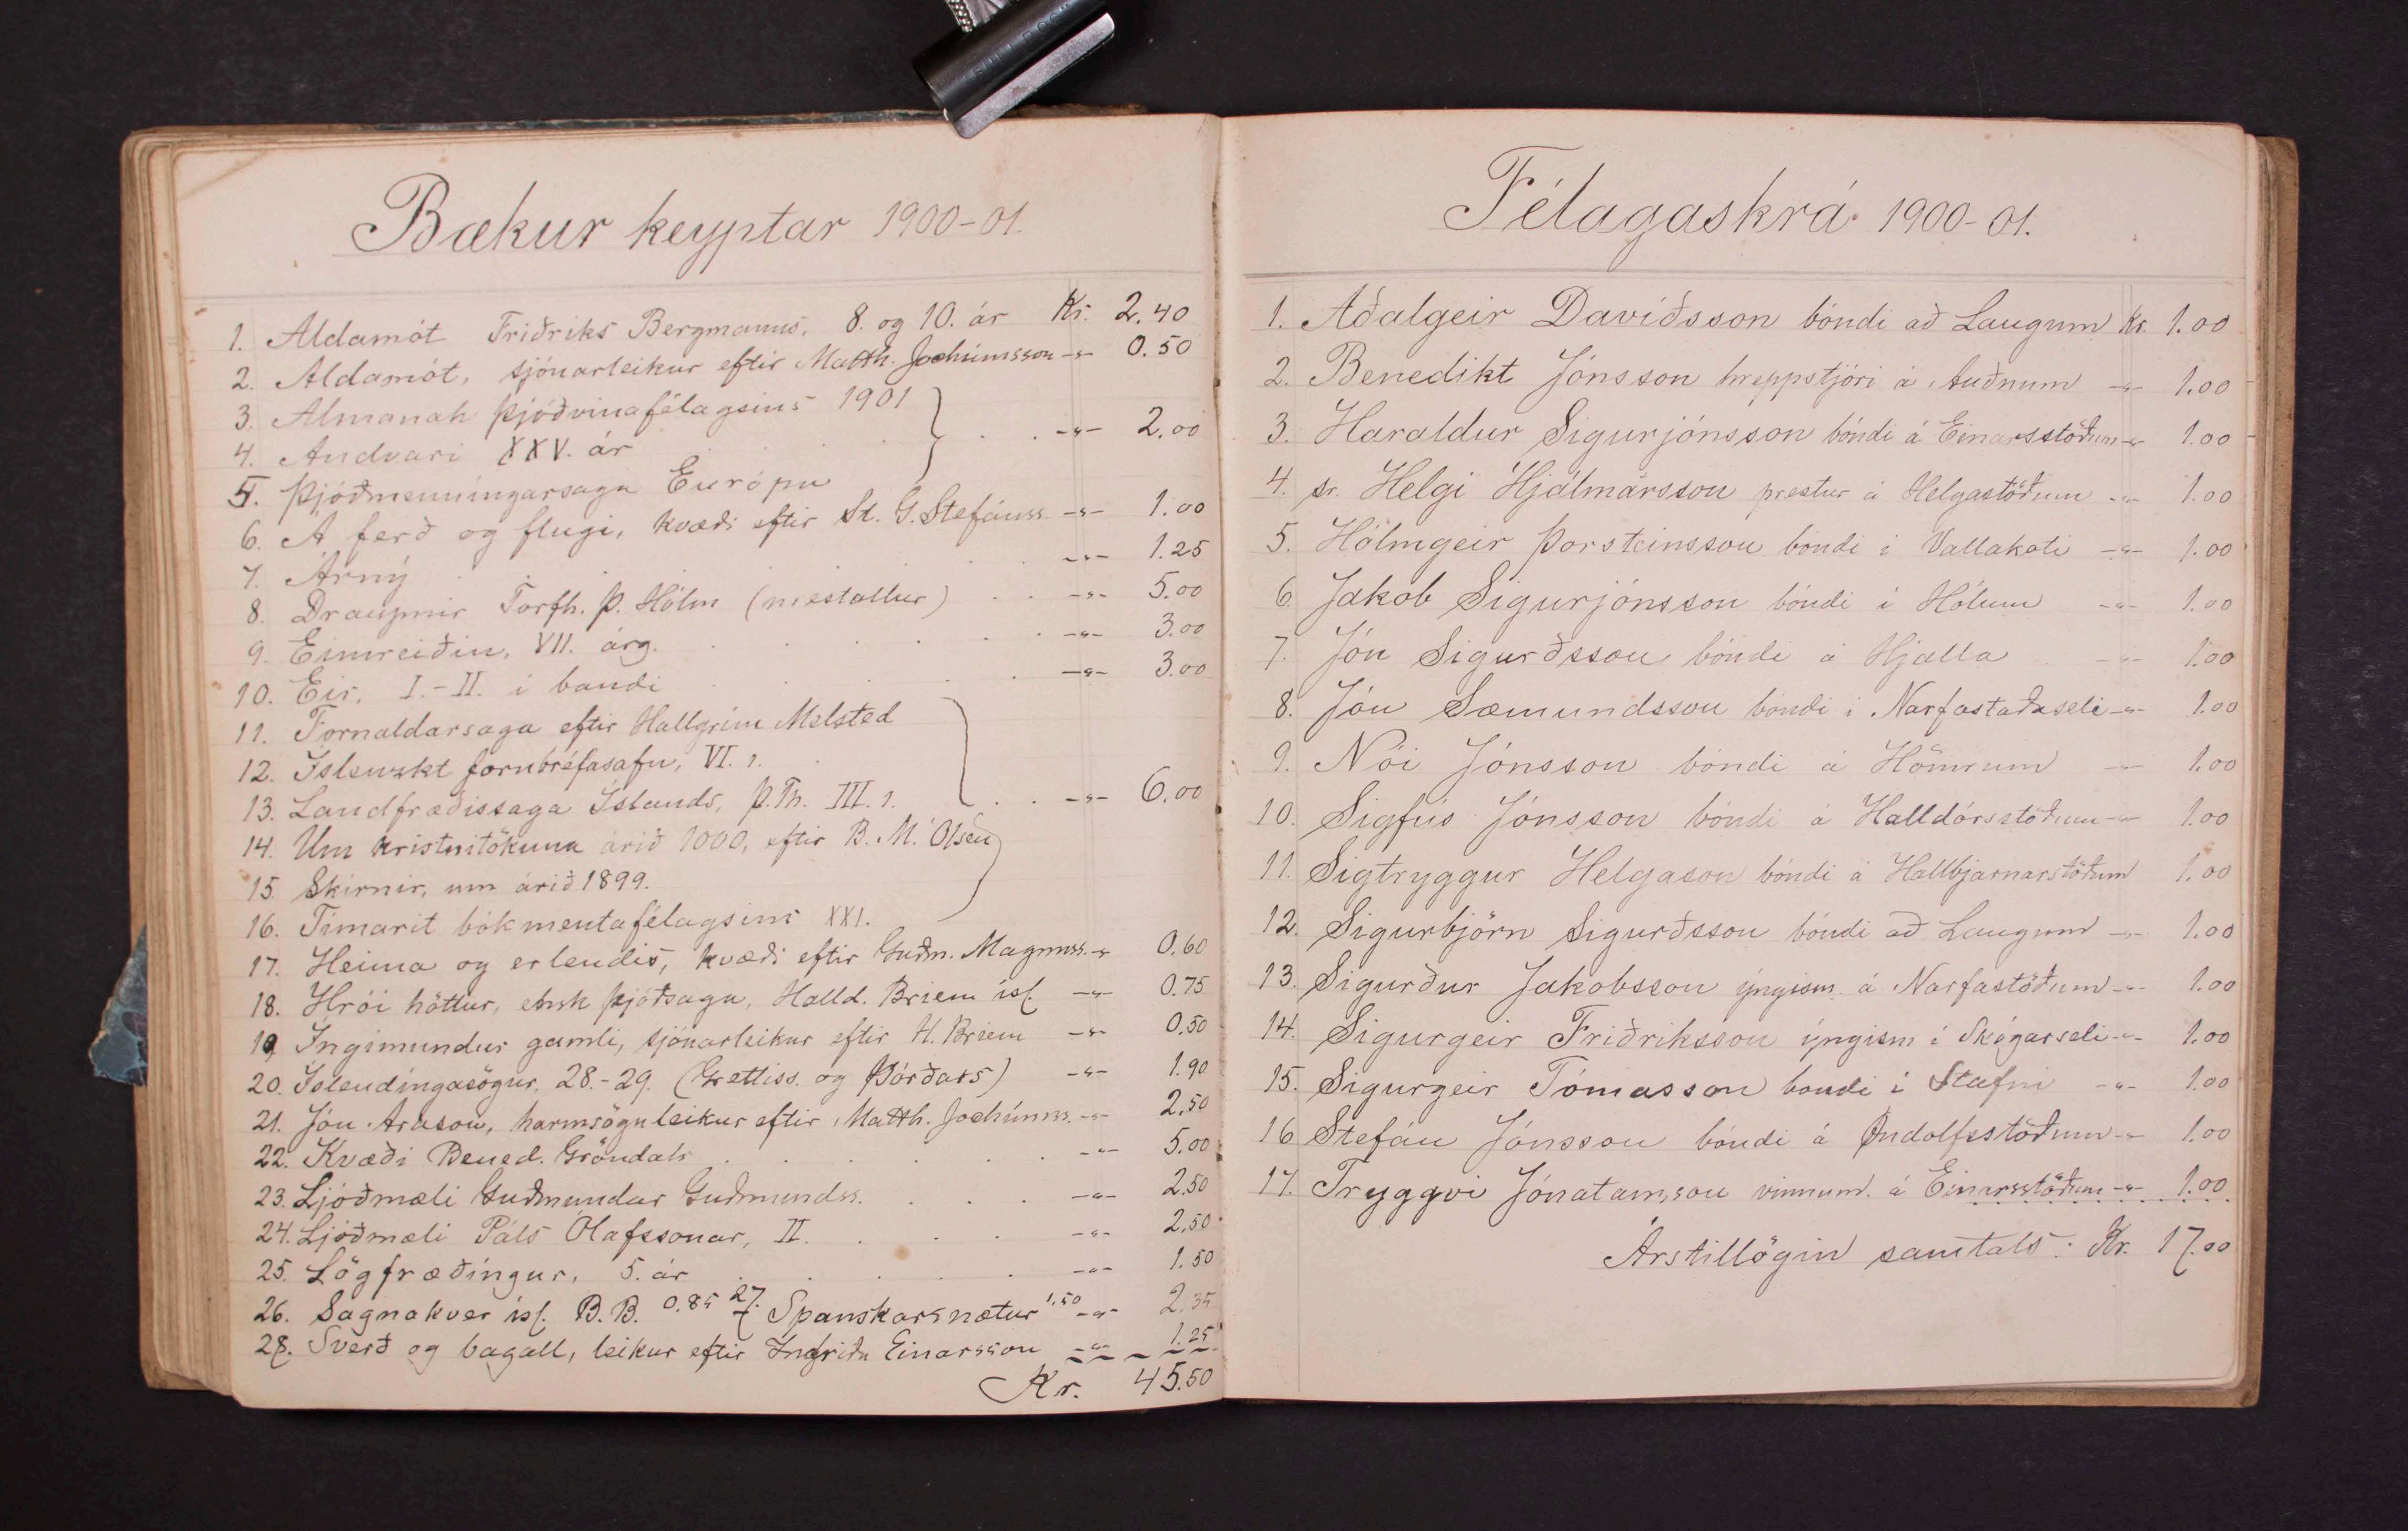 Bækur keyptar 1900-01.
1. Aldamót Friðriks Bergmanns, 8. og 10. ár Kr. 2.40
2. Aldamót, sjónarleikur eftir Matth. Jochúmsson -"- 0.50
3. Almanak þjóðvinafélagsins 1901
4. Andvari XXV. ár . . . . -"- 2.00
5. Þjóðmenningarsaga Európu
6. Á ferð og flugi, kvæði eftir St. G. Stefánss. -"- 1.00
7. Árný . . . . . -"- 1.25
8. Draupnir Torfh. Þ. Hólm (mestallur) . . -"- 5.00
9. Eimreiðin, VII. árg. . . . . . -"- 3.00
10. Eir, I.-II. í bandi . . . . . -"- 3.00
11. Fornaldarsaga eftir Hallgrím Melsted
12. Íslenzkt fornbréfasafn, VI. 1.
13. Landfræðissaga Íslands, Þ. Th. III. 1. . . -"- 6.00
14. Um kristnitökuna árið 1000, eftir B. M. Ólsen
15. Skírnir, um árið 1899.
16. Tímarit bókmentafélagsins XXI.
17. Heima og erlendis, kvæði eftir Guðm. Magnúss. -"- 0.60
18. Hrói höttur, ensk þjóðsaga, Halld. Briem ísl. -"- 0.75
19. Ingimundur gamli, sjónarleikur eftir H. Briem -"- 0.50
20. Íslendíngasögur. 28.-29. (Grettiss. og Þórðars) -"- 1.90
21. Jón Arason, harmsöguleikur eftir Matth. Jochúmss. -"- 2.50
22. Kvæði Bened. Gröndals . . . . . . -"- 5.00
23. Ljóðmæli Guðmundar Guðmundss. . . . -"- 2.50
24. Ljóðmæli Páls Ólafssonar, II. . . . -"- 2.50
25. Lögfræðíngur, 5. ár . . . . . -"- 1.50
26. Sagnakver ísl. B. B. 0.85 27. Spanskarsnætur 1.50 -"- 2.35
28. Sverð og bagall, leikur eftir Indriða Einarsson -"- 1.25
Kr. 45.50
Félagaskrá 1900-01.
1. Aðalgeir Davíðsson bóndi að Laugum Kr. 1.00
2. Benedikt Jónsson hreppstjóri á Auðnum -"- 1.00
3. Haraldur Sigurjónsson bóndi á Einarsstöðum -"- 1.00
4. sr. Helgi Hjálmarsson prestur á Helgastöðum -"- 1.00
5. Hólmgeir Þorsteinsson bóndi í Vallakoti -"- 1.00
6. Jakob Sigurjónsson bóndi í Hólum -"- 1.00
7. Jón Sigurðsson bóndi á Hjalla -"- 1.00
8. Jón Sæmundsson bóndi í Narfastaðaseli -"- 1.00
9. Nói Jónsson bóndi á Hömrum -"- 1.00
10. Sigfús Jónsson bóndi á Halldórsstöðum -"- 1.00
11. Sigtryggur Helgason bóndi á Hallbjarnarstöðum 1.00
12. Sigurbjörn Sigurðsson bóndi að Laugum -"- 1.00
13. Sigurður Jakobsson ýngism. á Narfastöðum -"- 1.00
14. Sigurgeir Friðriksson ýngism í Skógarseli -"- 1.00
15. Sigurgeir Tómasson bóndi í Stafni -"- 1.00
16. Stefán Jónsson bóndi á Öndólfsstöðum -"- 1.00
17. Tryggvi Jónatansson vinnum. á Einarsstöðum -"- 1.00
Árstillögin samtals: Kr. 17.00